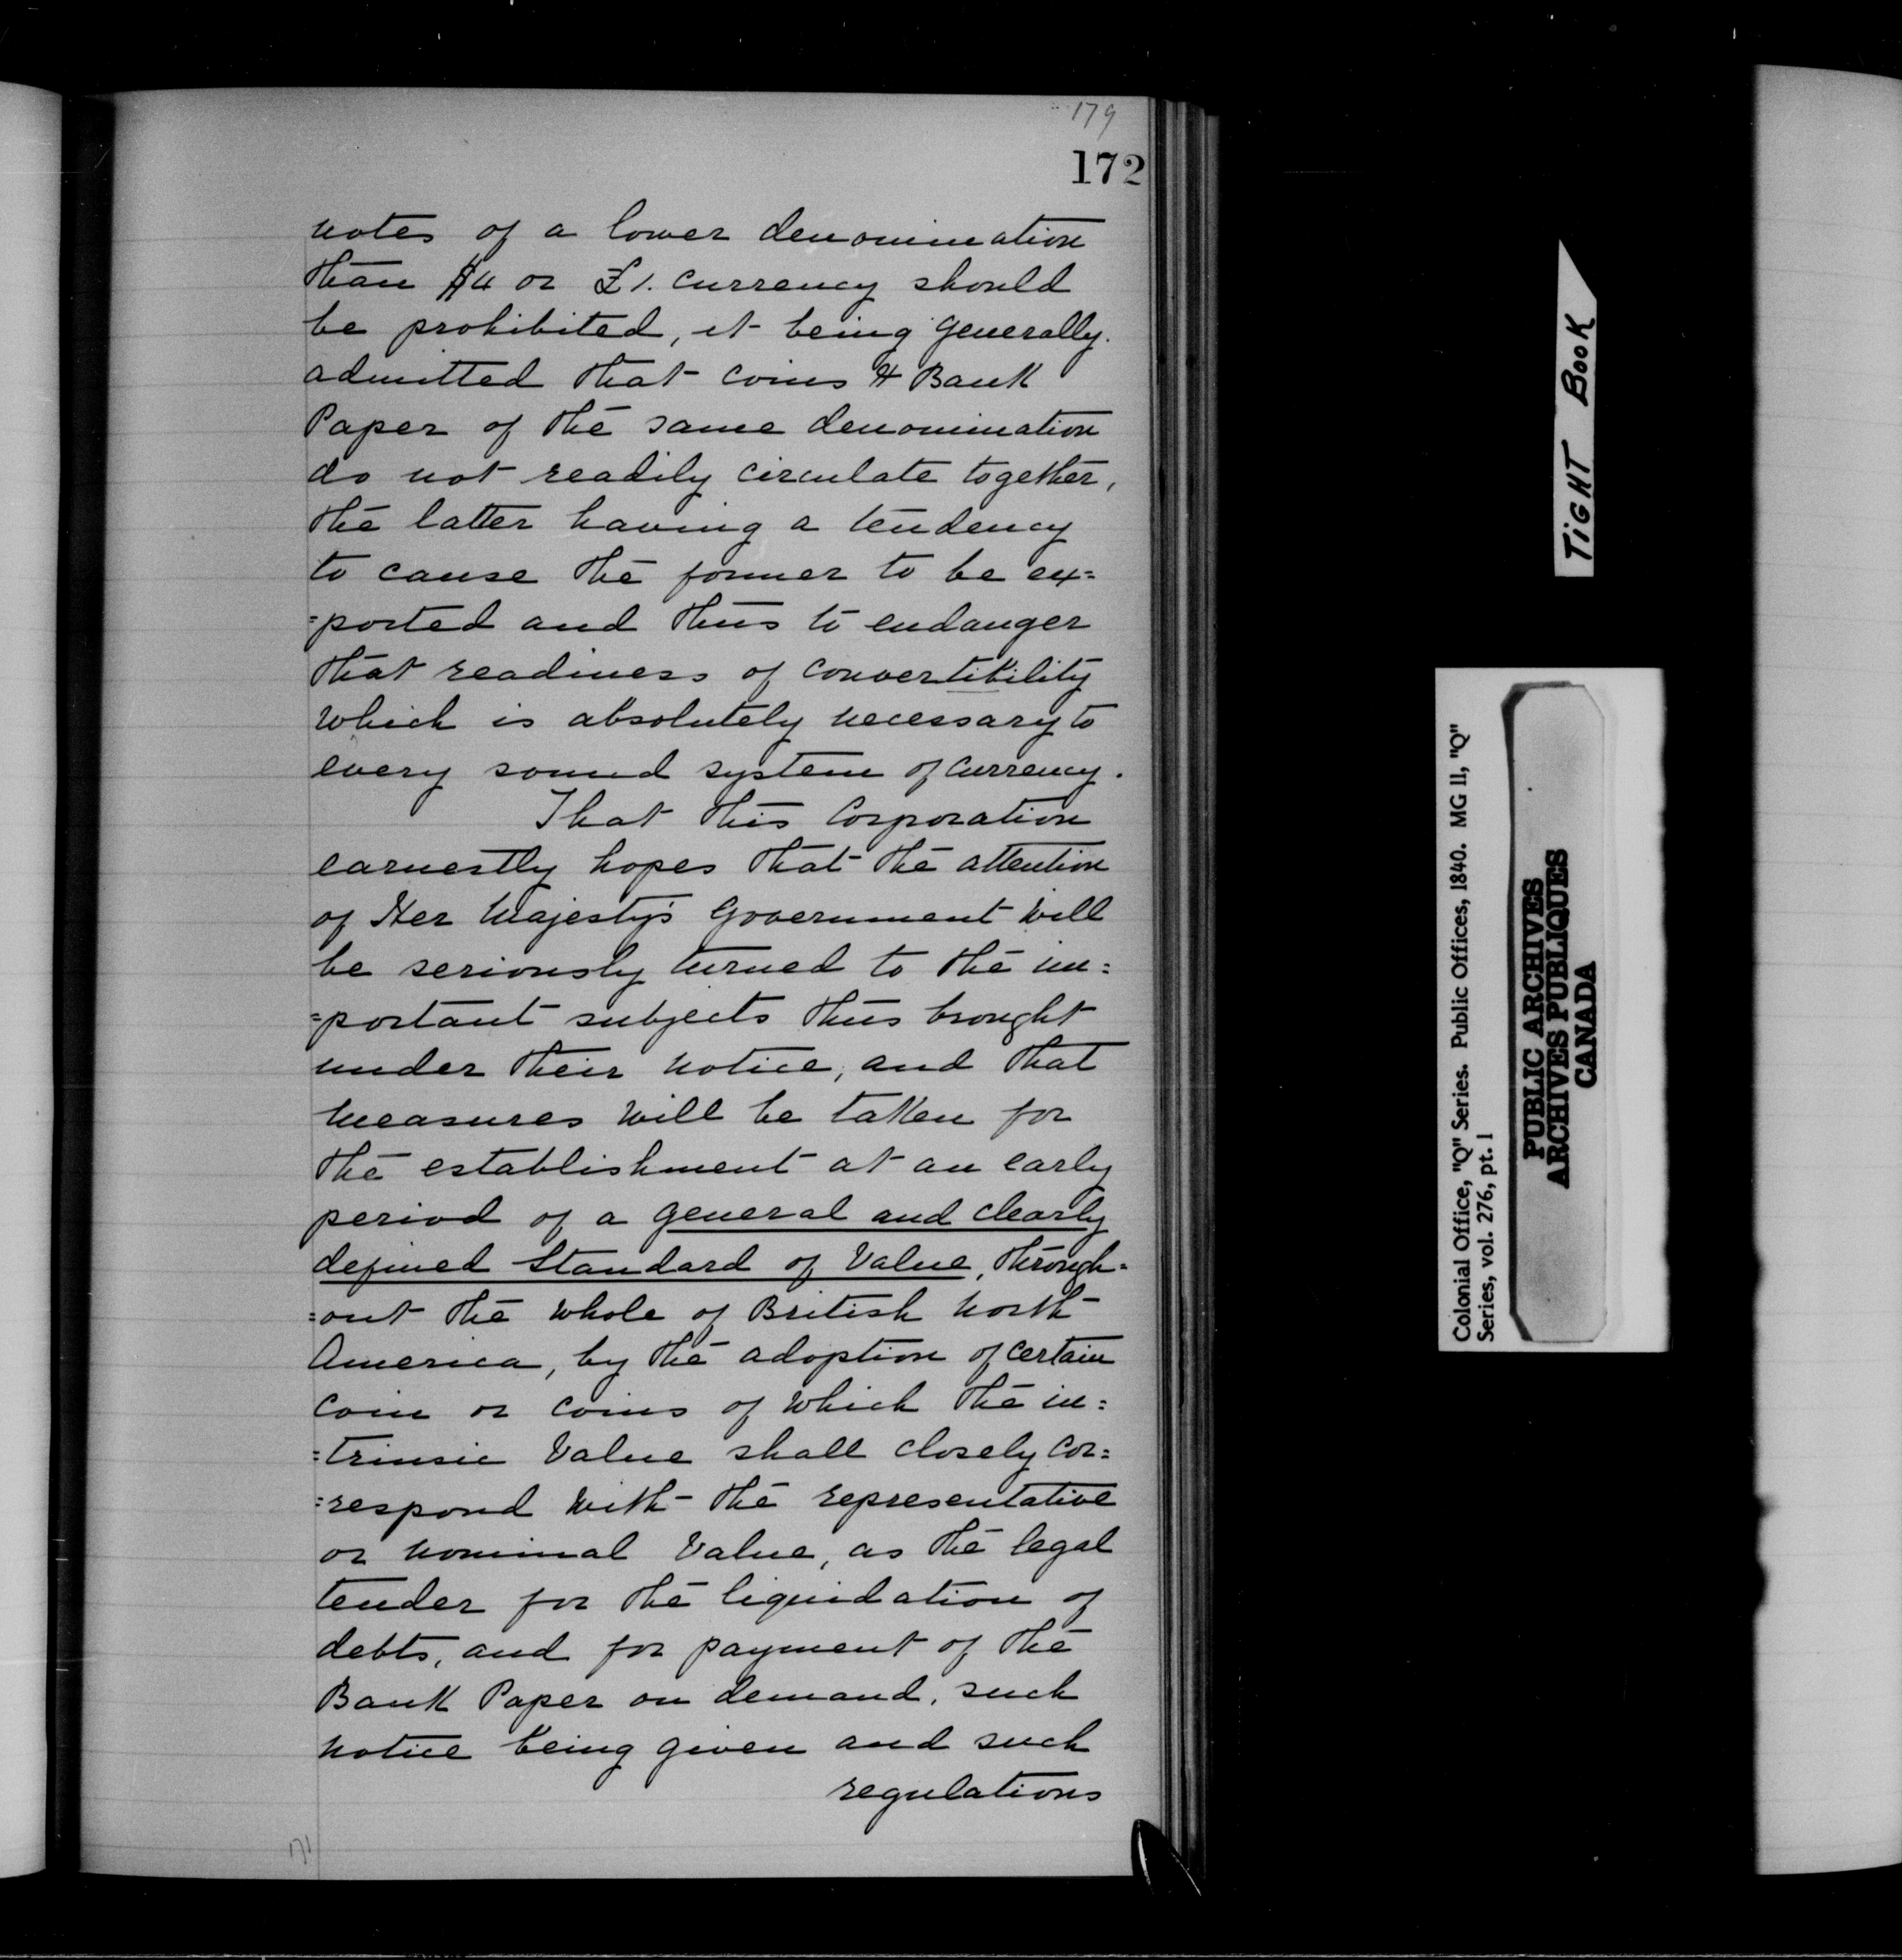 179
172
notes of a lower denomination
than $4 or £1. currency should
be prohibited, it being generally.
admitted that coins & Bank
Paper of the same denomination
do not readily circulate together,
the latter having a tendency
to cause the former to be ex=
=ported and thus to endanger
that readiness of convertibility
which is absolutely necessary to
every sound system of currency.
That this Corporation
earnestly hopes that the attention
of Her Majesty's Government will
be seriously turned to the im=
=portant subjects thus brought
under their notice, and that
measures will be taken for
the establishment at an early
period of a general and clearly
defined Standard of Value, through=
=out the whole of British North
America, by the adoption of certain
coin or coins of which the in=
=trinsic Value shall closely cor=
=respond with the representative
or nominal Value, as the legal
tender for the liquidation of
debts, and for payment of the
Bank Paper on demand, such
notice being given and such
regulations
171
TIGHT BOOK
Colonial Office, "Q" Series. Public Offices, 1840. MG 11, "Q"
Series, vol. 276, pt. 1
PUBLIC ARCHIVES
ARCHIVES PUBLIQUES
CANADA